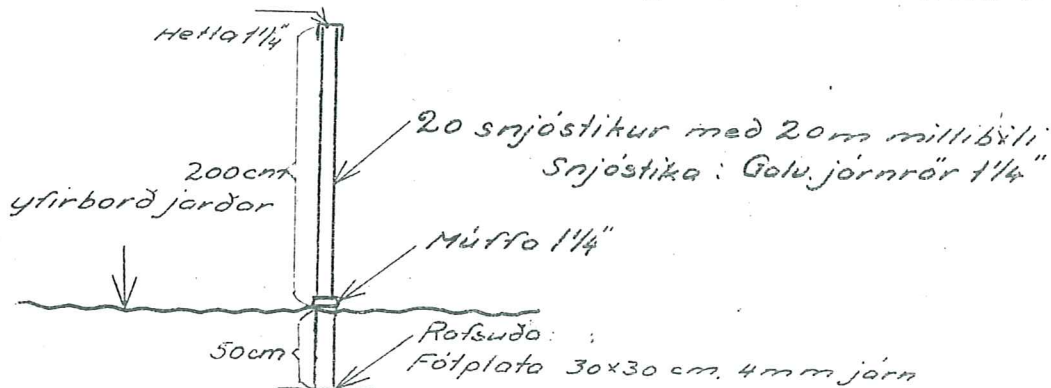 Hetta 1 1/4"
20 snjóstikur með 20m millibili
Snjóstika : Galv. járnrör 1 1/4"
200cm
yfirborð jarðar
Múffa 1 1/4"
50cm
Rafsuða :
Fótplata 30x30 cm. 4mm járn